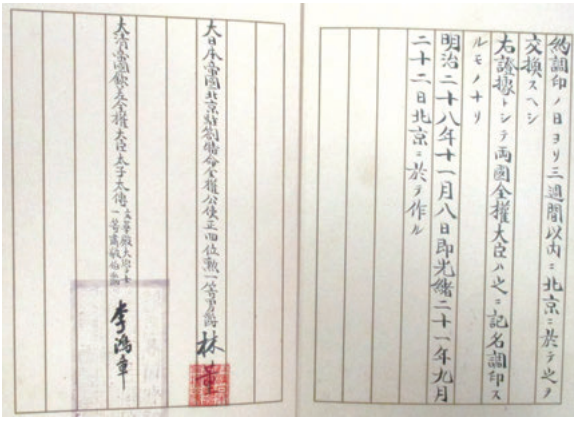 約調印ノ日ヨリ三週間以内ニ北京ニ於テ之ヲ
交換スヘシ
右證據トシテ兩國全權大臣ハ之ニ記名調印ス
ルモノナリ
明治二十八年十一月八日即光緒二十一年九月
二十二日北京ニ於テ作ル
大日本帝國北京駐劄特命全權公使正四位勲一等男爵 林董
大清帝國欽差全權大臣太子太傅文華殿大學士一等肅毅伯爵 李鴻章